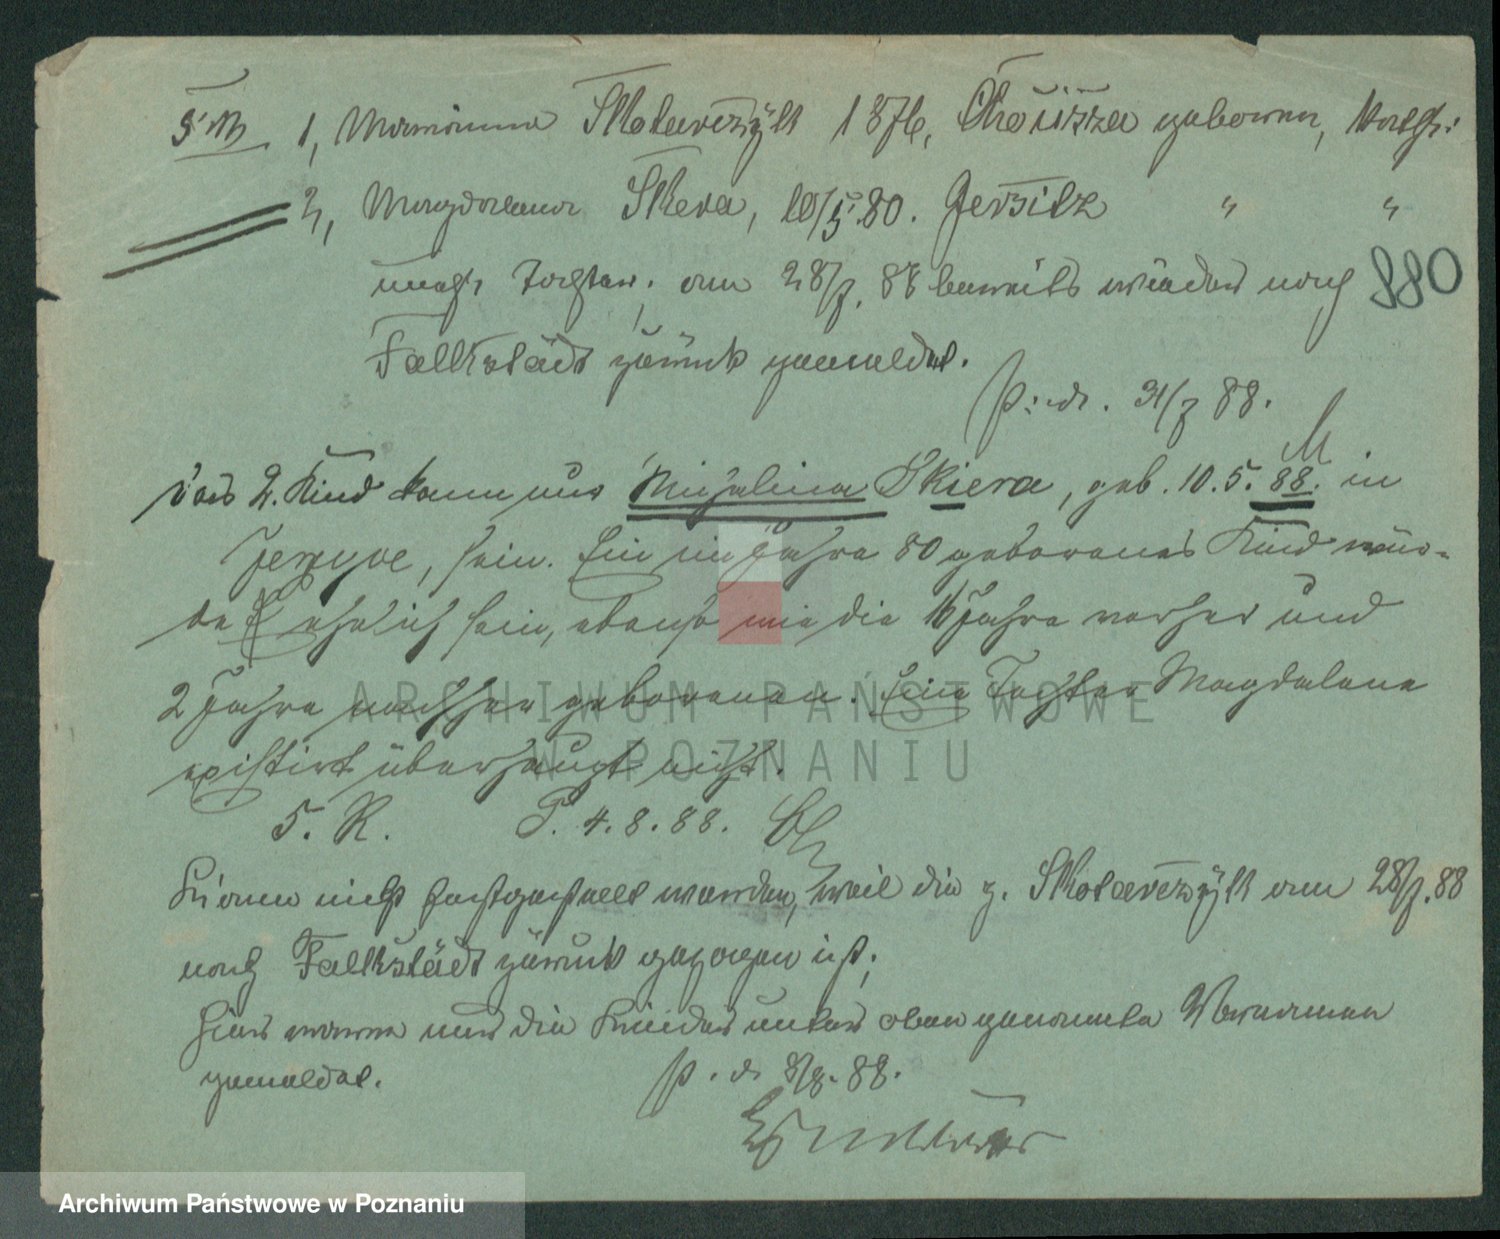 1, Marianna Skotarczyk 1876, geboren, kath:
2, Magdalena Skera, 10/5.80. Jersitz " "
unehl. Tochter, am 28/7. 88 bereits wieder nach 880
Falkstädt zurück gemeldet.
P. d. 31/7 88.
M
das 2. Kind kann nur Michalina Skiera, geb. 10.5.88. in
Jerzyce, sein. Ein im Jahre 80 geborenes Kind wür-
de ehelich sein, ebenso wie die Jahre vorher und
2 Jahre nachher geborenen. Eine Tochter Magdalena
existirt überhaupt nicht.
5. R. P. 4.8.88.
Kann nicht festgestellt werden, weil die g. Skotarczyk am 28/7.88
nach Falkstädt zurück gezogen ist;
hier waren nur die Kinder unter oben genannte Vornamen
gemeldet. P. d. 8/8. 88.
ARCHIWUM PAŃSTWOWE
W POZNANIU
Archiwum Państwowe w Poznaniu